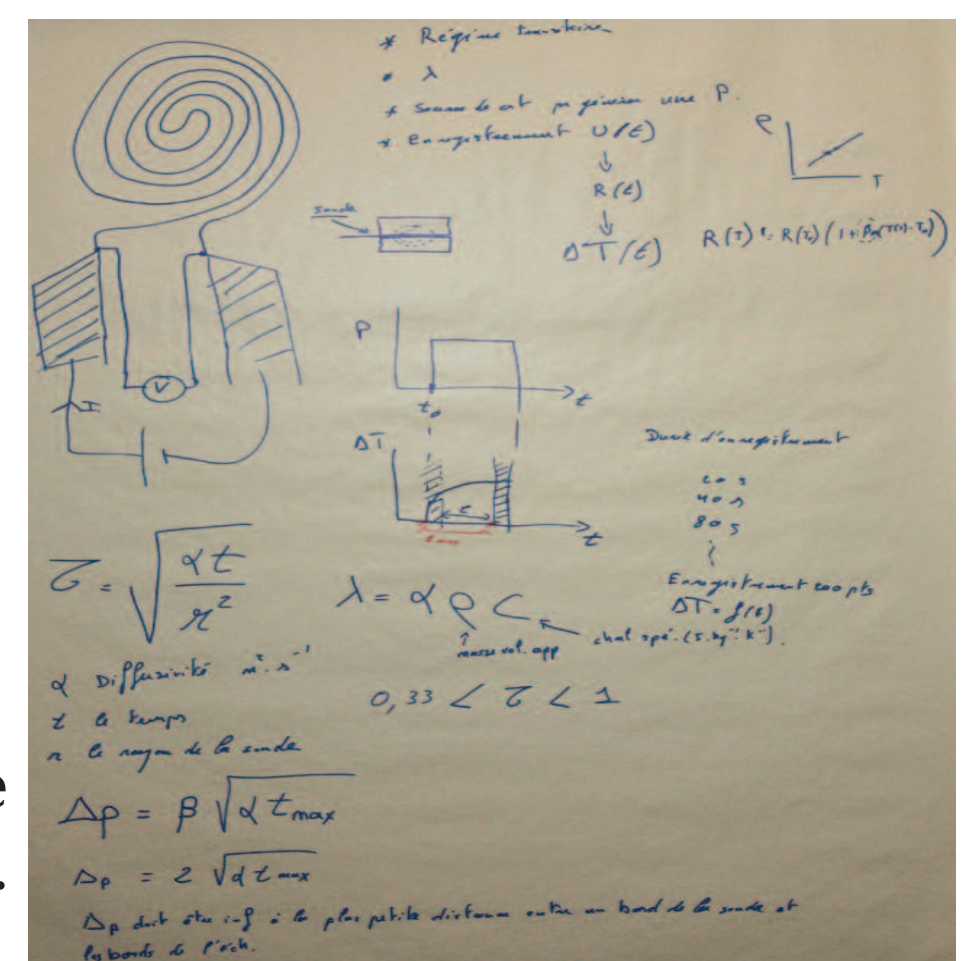 * Régime transitoire
* λ
* Source de cst pr générer une P.
* Enregistrement U(t)
↓
R(t)
↓
ΔT(t)
ρ
T
R(T) = R(T₀) (1 + β(T(t) - T₀))
sonde
V
I
P
t₀
t
ΔT
τ
t max
t
Durée d'enregistrement
20 s
40 s
80 s
Enregistrement 200 pts
ΔT = f(t)
τ = √(αt / r²)
λ = α ρ C
masse vol. app
chal spé. (J.kg⁻¹.K⁻¹).
α Diffusivité m².s⁻¹
t le temps
r le rayon de la sonde
0,33 < τ < 1
Δp = β √(α t max)
Δp = 2 √(α t max)
Δp doit être inf à la plus petite distance entre un bord de la sonde et
les bords de l'éch.
e
.